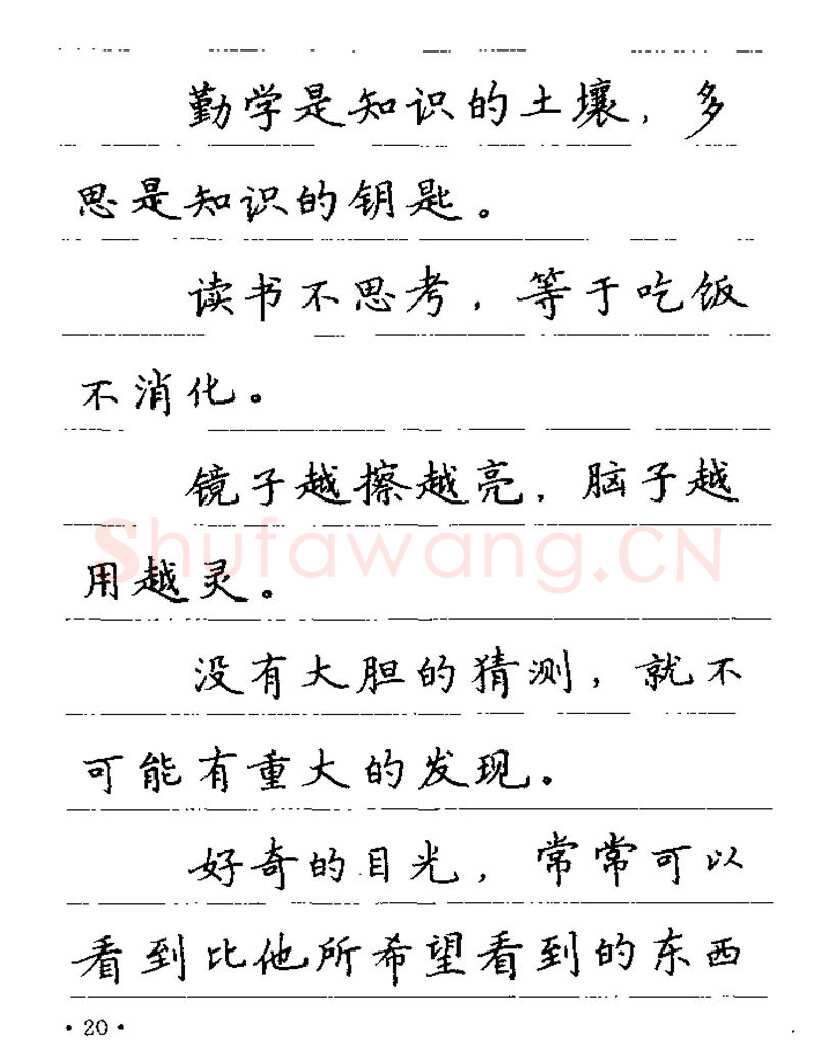 勤学是知识的土壤，多
思是知识的钥匙。
读书不思考，等于吃饭
不消化。
镜子越擦越亮，脑子越
Shufawang.CN
用越灵。
没有大胆的猜测，就不
可能有重大的发现。
好奇的目光，常常可以
看到比他所希望看到的东西
·20·